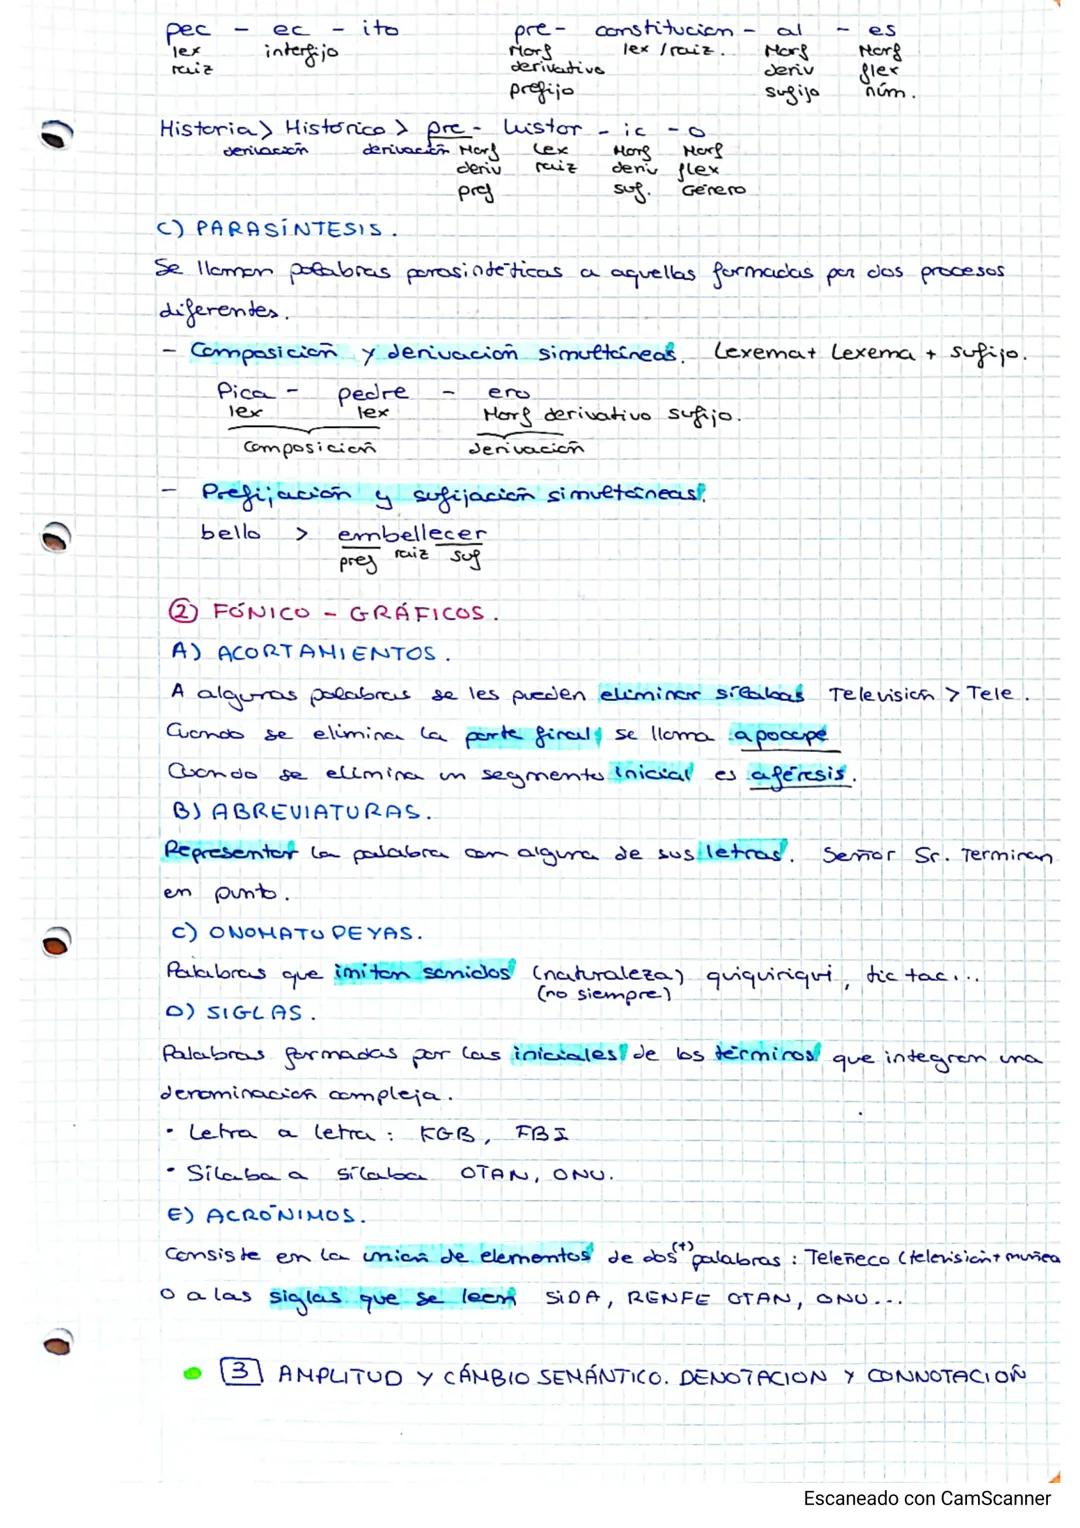 pec - ec - ito pre- constitucion - al - es
lex interfijo Morf lex / raiz. Morf Morf
raiz derivativo deriv flex
prefijo sufijo núm.
Historia > Histórico > pre - histor - ic - o
derivación derivación Morf Lex Morf Morf
deriv raiz deriv flex
pref suf. Género
C) PARASÍNTESIS.
Se llaman palabras parasintéticas a aquellas formadas por dos procesos
diferentes.
- Composición y derivación simultáneas. Lexema + Lexema + sufijo.
Pica - pedre - ero
lex lex Morf derivativo sufijo.
Composición derivación
- Prefijación y sufijación simultáneas.
bello > embellecer
pref raiz suf
② FÓNICO - GRÁFICOS.
A) ACORTAMIENTOS.
A algunas palabras se les pueden eliminar sílabas Television > Tele.
Cuando se elimina la parte final, se llama apocope
Cuando se elimina un segmento inicial es aféresis.
B) ABREVIATURAS.
Representar la palabra con alguna de sus letras. Señor Sr. Terminan
en punto.
C) ONOMATOPEYAS.
Palabras que imitan sonidos (naturaleza) quiquiriqui, tic tac...
(no siempre)
D) SIGLAS.
Palabras formadas por las iniciales de los términos que integran una
denominación compleja.
• Letra a letra: KGB, FBI
• Sílaba a sílaba OTAN, ONU.
E) ACRÓNIMOS.
Consiste en la unión de elementos de dos (+) palabras: Teleñeco (television + muñeco
O a las siglas que se leen SIDA, RENFE OTAN, ONU...
3 AMPLITUD Y CÁMBIO SEMÁNTICO. DENOTACION Y CONNOTACIÓN
Escaneado con CamScanner